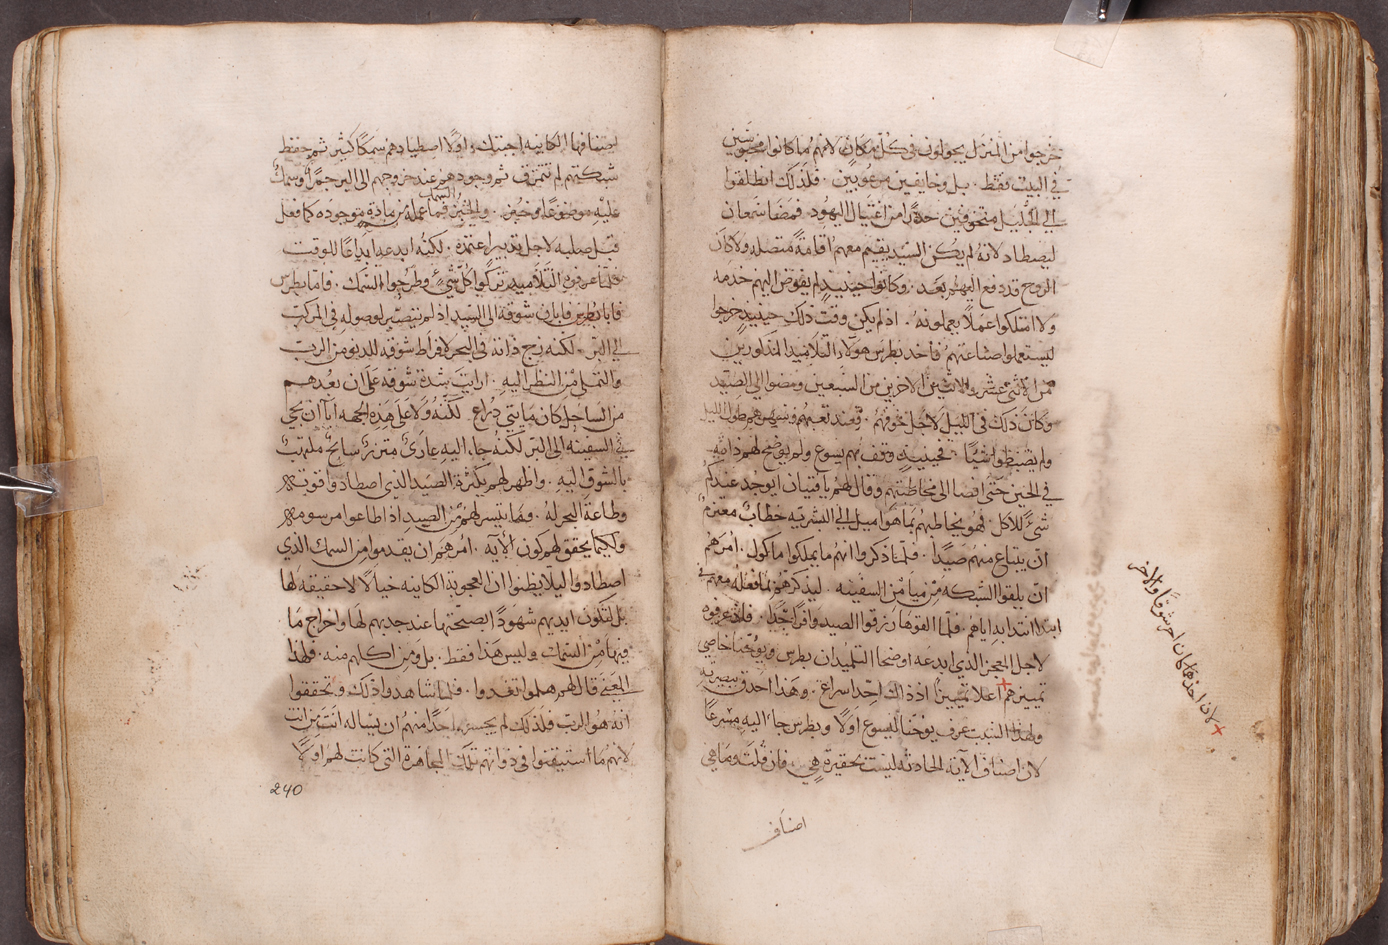 خرجوا من المنزل يجولون في كل مكان لانهم ما كانوا محبوسين
في البيت فقط . بل وخايفين مرعوبين . فلذلك انطلقوا
الى الجليل متخوفين حذرا من اغتيال اليهود . فمضا سمعان
ليصطاد لانه لم يكن السيد يقيم معهم اقامة متصله ولا كان
الروح قد دفع اليهم بعد . وكانوا حينيذ لم يفوض اليهم خدمه
ولا امتلكوا عملا يعملونه . اذ لم يكن وقت ذلك حينيذ خرجوا
ليستعملوا صناعتهم فاخد بطرس هولاء التلاميد المذكورين
من الاثني عشر والاثنين الاخرين من السبعين ومضوا الى الصيد
وكان ذلك في الليل لاجل خوفهم . وعند تعبهم وسهرهم طول الليل
ولم يضبطوا شيا . فحينيذ وقف بهم يسوع ولم يوضح لهم ذاته
في الحين حتى افضا الى مخاطبتهم وقال لهم يا فتيان ايوجد عندكم
شيء للاكل . فهو يخاطبهم بما هو اميل الى البشريه خطاب معتزم
ان يبتاع منهم صيدا . فلما ذكروا انهم ما يملكوا ماكول . امرهم
ان يلقوا الشبكه من ميامن السفينه . ليذكرهم بما فعله معهم في
ابتدا ابتدايه اياهم . فلما القوها رزقوا الصيد وافرا جدا . فلما عرفوه
لاجل المعجز الذي ابدعه اوضحا التلميدان بطرس ويوحنا خاصي
تمييزهم اعلانا مبينا اذ ذاك احد سراع . وهذا احدق بصيرته
ولهذا السبب عرف يوحنا ليسوع اولا وبطرس جاء اليه مسرعا
لان اصناف الآية الحادثه ليست بحقيرة هي . فان قلت وما هي
اصناف
لان احدهما كان احر شوقا والاخر
اصنافها الكاينه اجبتك . اولا اصطيادهم سمكا كثير ثم حفظ
شبكتهم لم تتمزق ثم وجودهم عند خروجهم الى البر جمرا وسمك
عليه موضوعا وخبز . ولا حين فما عمله من مادة موجوده كما فعل
السمك
قبل صلبه لاجل تدبير اعتمده . لكنه ابدعه ابداعا للوقت
فلما عرفوه التلاميد تركوا كل شيء وطرحوا السمك . فاما بطرس
فابان شوقه الى السيد اذ لم يتصبر لوصوله في المركب
الى البر . لكنه زج ذاته في البحر لافراط شوقه للدنو من الرب
والتملي من النظر اليه . ارايت شدة شوقه على ان بعدهم
من الساحل كان مايتي دراع . لكنه ولا على هذه الجهه اتا ان يجي
في السفينه الى البر لكنه جاء اليه عاري متزر سابح ملتهب
بالشوق اليه . واظهر لهم بكثرة الصيد الذي اصطادوا قوته
وطاعة البحر له . وبما تيسر لهم من الصيد اذ اطاعوا مرسومه
ولكيما يحقق لهم كون الآيه . امرهم ان يقدموا من السمك الذي
اصطادوا ليلا يظنوا ان العجوبة الكاينه خيالا لا حقيقة لها
بل لتكون ايديهم شهودا لصحتها عند جدبهم لها واخراج ما
فيها من السمك وليس هذا فقط . بل ومن اكلهم منه . فلهذا
المعنى قال لهم هلموا تغدوا . فلما شاهدوا ذلك وتحققوا
انه هو الرب فلذلك لم يجسر احدا منهم ان يساله انت من انت
لانهم ما استيقنوا في ذواتهم تلك المجاهرة التي كانت لهم اولا
240